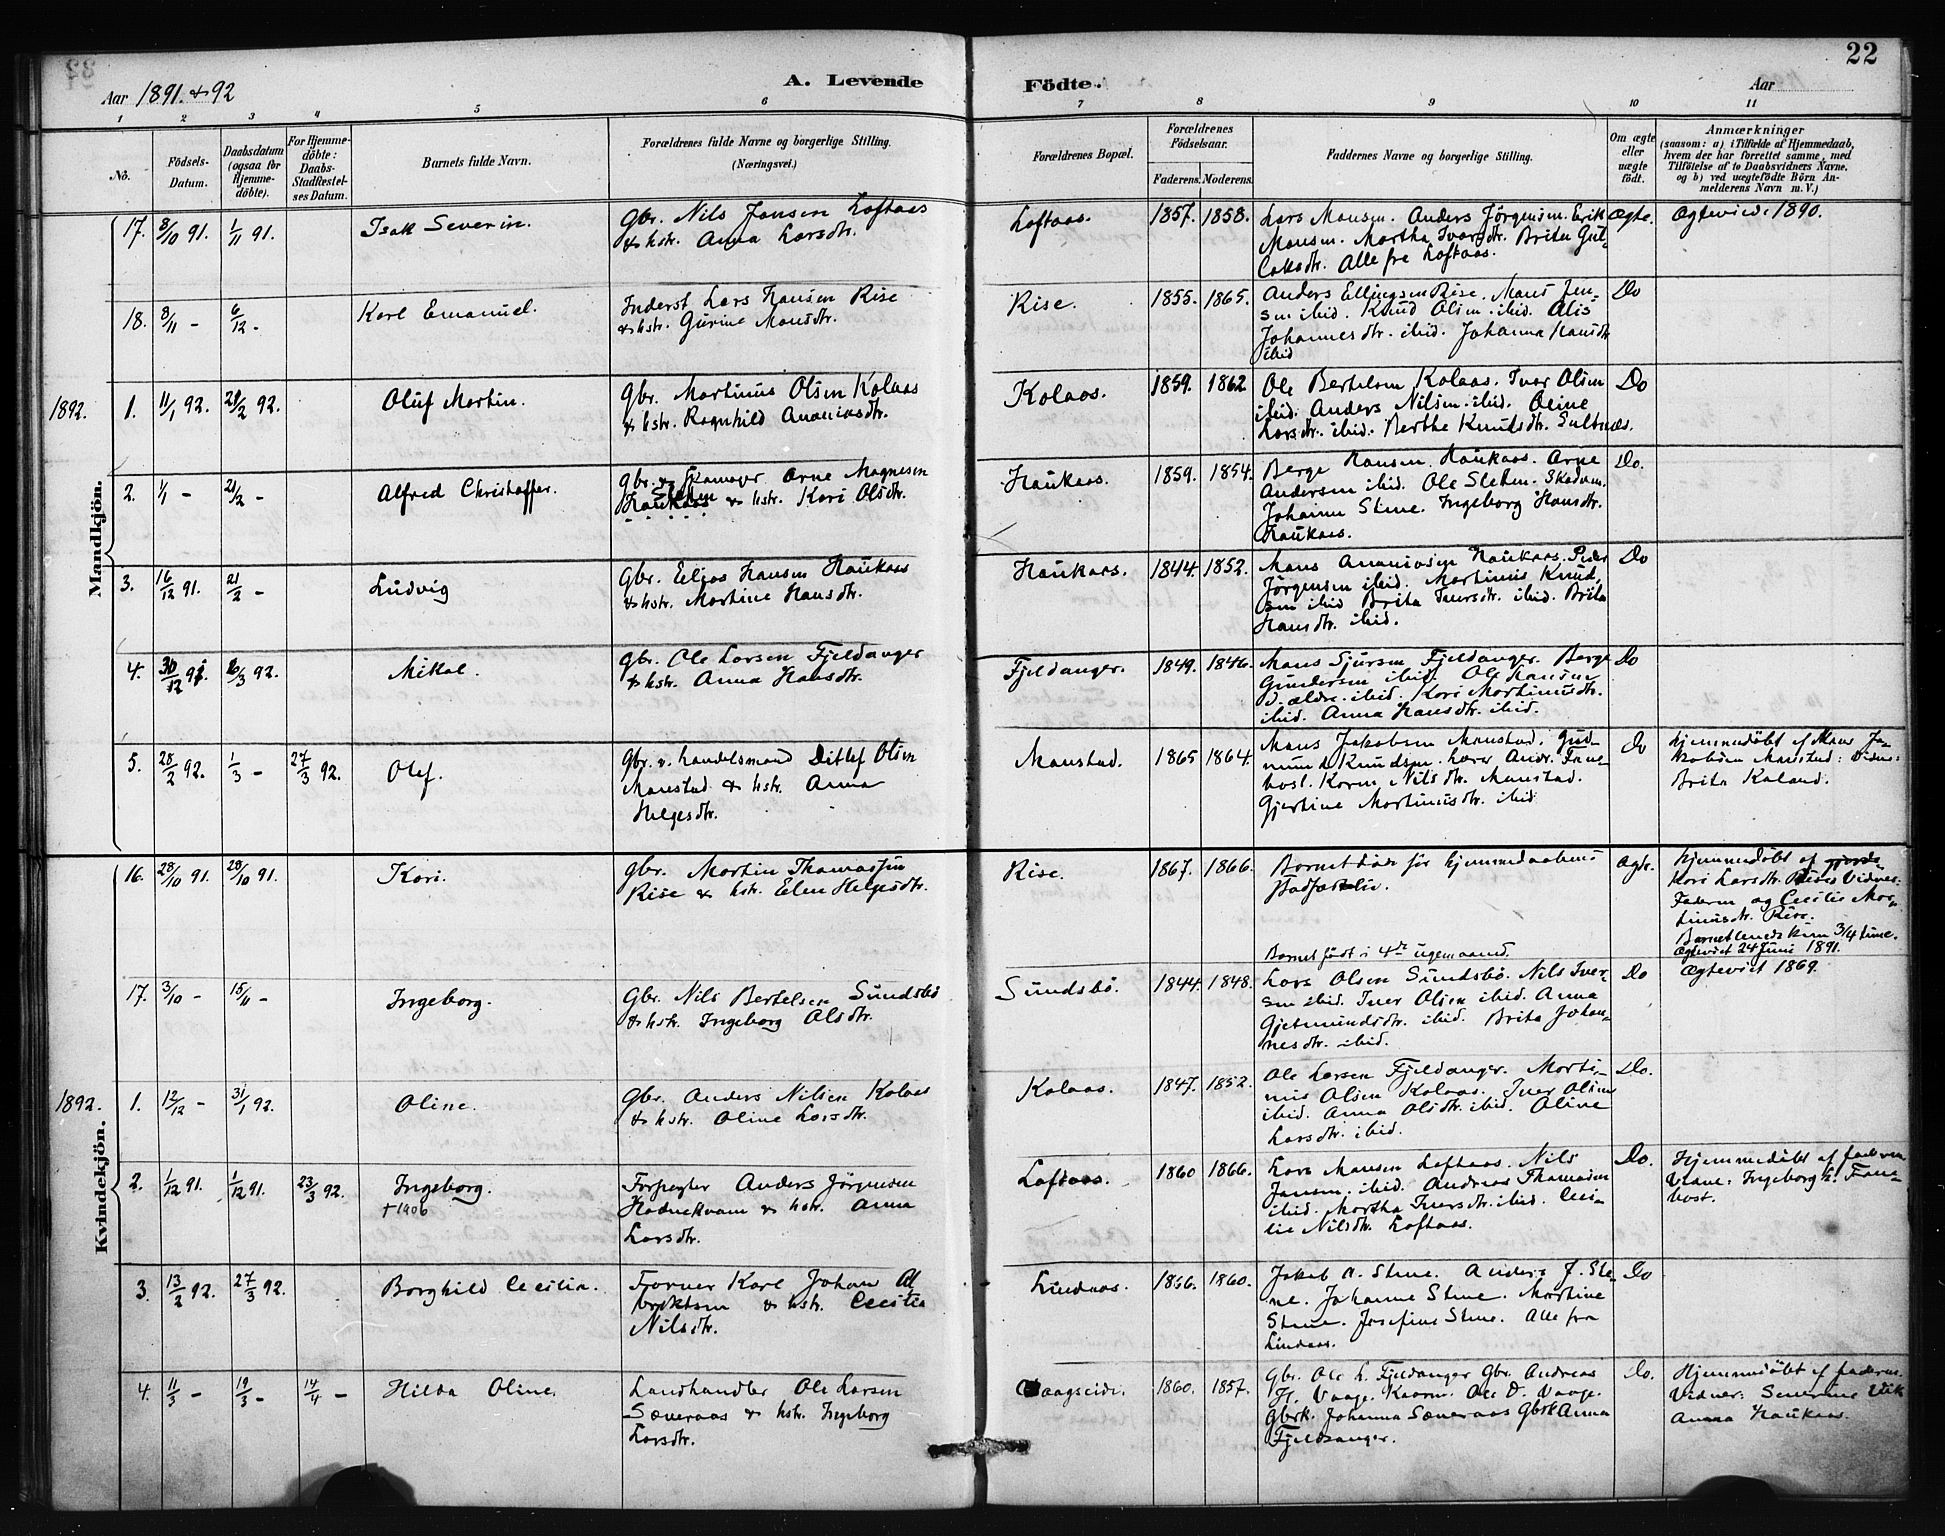 22
Aar 1891 & 92
A. Levende Födte.
Aar
1 2 3 4 5 6 7 8 9 10 11
No.
Födsels-
Datum.
Daabsdatum
(ogsaa for
Hjemme-
döbte).
For Hjemme-
döbte:
Daabs-
Stadfæstel-
ses Datum.
Barnets fulde Navn.
Forældrenes fulde Navne og borgerlige Stilling.
(Næringsvei.)
Forældrenes Bopæl.
Forældrenes
Födselsaar.
Faderens. Moderens.
Faddernes Navne og borgerlige Stilling.
Om ægte
eller
uægte
født.
Anmærkninger
(saasom: a) i Tilfælde af Hjemmedaab,
hvem der har forrettet samme, med
Tilföielse af to Daabsvidners Navne,
og b) ved uægtefödte Börn An-
melderens Navn m. V.)
Mandkjön.
17. 8/10 91. 1/11 91. Isak Severin. Gbr. Nils Jansen Loftaas
& hstr. Anna Larsdtr.
Loftaas. 1857. 1858. Lars Monsen. Anders Jörgensen. Erik
Monsen. Martha Ivarsdtr. Brita Gul-
laksdtr. Alle fra Loftaas.
Ægte. Ægteviede 1890.
18. 8/11 - 6/12 - Karl Emanuel. Inderst Lars Hansen Rise
& hstr. Gurine Monsdtr.
Rise. 1855. 1865. Anders Ellingsen Rise. Mons Jen-
sen ibid. Knud Olsen ibid. Alis
Johannesdtr. ibid. Johanna Hansdtr
ibid
Do
1892. 1. 11/1 92. 28/2 92. Oluf Martin. Gbr. Martinus Olsen Kolaas
& hstr. Ragnhild Ananiasdtr.
Kolaas. 1859. 1862 Ole Bertelsen Kolaas. Ivar Olsen
ibid. Anders Nilsen ibid. Oline
Larsdtr. ibid. Berthe Knutsdtr.
Do
2. 1/1 - 21/2 - Alfred Christoffer. Gbr. & Skomager Arne Magnesen
Haukaas & hstr. Kari Olsdtr.
Haukaas. 1859. 1854. Berge Hansen Haukaas. Arne
Andersen ibid. Ole Sletten.
Johanne Stene. Ingeborg Hansdtr.
Haukaas.
Do.
3. 16/12 91. 21/2 - Ludvig Gbr. Elias Hansen Haukaas
& hstr. Martine Hansdtr.
Haukaas. 1844. 1852. Mons Ananiasen Haukaas. Peder
Jörgensen ibid. Martinus Knud-
sen ibid Brita Iversdtr. ibid. Brita
Hansdtr. ibid.
Do
4. 30/12 91 /3 92. Mikal. Gbr. Ole Larsen Fjeldanger
& hstr. Anna Hansdtr.
Fjeldanger. 1849. 1846. Mons Sjursen Fjeldanger. Berge
Gundersen ibid. Ole Hansen
d. ældre ibid. Kari Martinusdtr.
ibid. Anna Hansdtr. ibid.
Do
5. 28/2 92. 1/3 - 27/3 92. Olaf. Gbr. & handelsmand Ditlef Olsen
Monstad & hstr. Anna
Helgesdtr.
Monstad. 1865 1864. Mons Jakobsen Monstad. Gud-
mund Knudsen. Lærer Andr. Fane-
bost. Karen Nilsdtr. Monstad.
Gjertine Martinusdtr. ibid
Do Hjemmedöbt af Mons Ja-
kobsen Monstad: Vidne:
Brita Kaland.
Kvindekjön.
16. 28/10 91. 28/10 91. Kari. Gbr. Martin Thomassen
Rise & hstr. Elen Helgesdtr.
Rise. 1867. 1866. Barnet döde før hjemmedaabens
stadfæstelse.
Barnet födt i 4de ugemaaned.
Ægte. Hjemmedöbt af
Kari Larsdtr. Rises Vidner:
Faderen og Cecilie Mar-
tinusdtr. Rise.
Barnet levede kun 3/4 time.
Ægteviet 24 Juni 1891.
17. 3/10 - 15/11 - Ingeborg. Gbr. Nils Bertelsen Sundsbö
& hstr. Ingeborg Olsdtr.
Sundsbö. 1844. 1848. Lars Olsen Sundsbö. Nils Iver-
sen ibid. Iver Olsen ibid. Anna
Gjetmundsdtr. ibid. Brita Johan-
nesdtr. ibid.
Do Ægteviet 1869.
1892. 1. 12/12 - 31/1 92. Oline. Gbr. Anders Nilsen Kolaas
& hstr. Oline Larsdtr.
Kolaas. 1847. 1852. Ole Larsen Fjeldanger. Marti-
nus Olsen Kolaas. Iver Olsen
ibid. Anna Olsdtr. ibid. Oline
Larsdtr. ibid.
Do.
2. 1/12 91. 1/12 91. 23/3 92. Ingeborg.
† 1906
Forpagter Anders Jörgensen
Hodnekvam & hstr. Anna
Larsdtr.
Loftaas. 1860 1866. Lars Monsen Loftaas. Nils
Jansen ibid. Andreas Thomasen
ibid. Martha Iversdtr. ibid. Ceci-
lie Nilsdtr. Loftaas.
Do. Hjemmedöbt af faderen
Vidne: Ingeborg L. Fane-
bost.
3. 13/2 92. 27/3 92. Borghild Cecilia. Garver Karl Johan Al-
brektsen & hstr. Cecilia
Nilsdtr.
Lindaas. 1866. 1860. Jakob A. Stene. Anders J. Ste-
ne. Johanne Stene. Martine
Stene. Josefine Stene. Alle fra
Lindaas.
Do
4. 11/3 - 19/3 - 14/4 - Hilda Oline. Landhandler Ole Larsen
Sæveraas & hstr. Ingeborg
Larsdtr.
Vaagseide. 1860. 1857. Gbr. Ole L. Fjeldanger Gbr. Andreas
H. Vaage. Ole D. Vaage.
Gbrk. Johanna Sæveraas Gbrk Anna
Fjeldsanger.
Do. Hjemmedöbt af faderen.
Vidner: Severine Vik
Anna Haukaas.